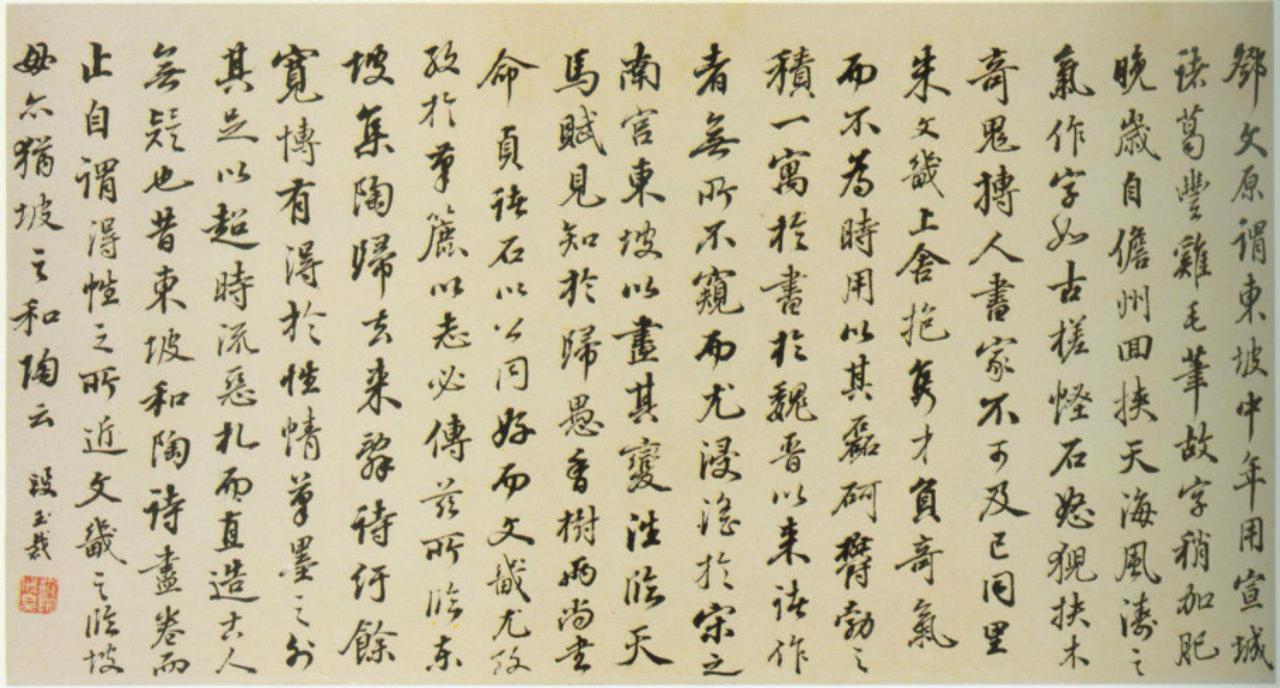 鄧文原謂東坡中年用宣城
諸葛豐雞毛筆故字稍加肥
晚歲自儋州回挾天海風濤之
氣作字如古槎怪石怒猊扶木
奇鬼搏人書家不可及已同里
朱文畿上舍抱隽才負奇氣
而不為時用以其磊砢鬱勃之
積一寓於書於魏晉以来諸作
者無所不窺而尤浸滛於宋之
南宫東坡以盡其變洼臨天
馬賦見知於歸愚香樹兩尚書
命貢諸石以公同好而文畿尤致
於筆麓以志必傳茲所臨东
坡集陶歸去来辭詩紆餘
寬愽有得於性情筆墨之外
其足以超時流惡札而直造古人
無疑也昔東坡和陶诗盡卷而
止自谓得性之所近文畿之臨坡
毋亦猶坡之和陶云
段玉裁